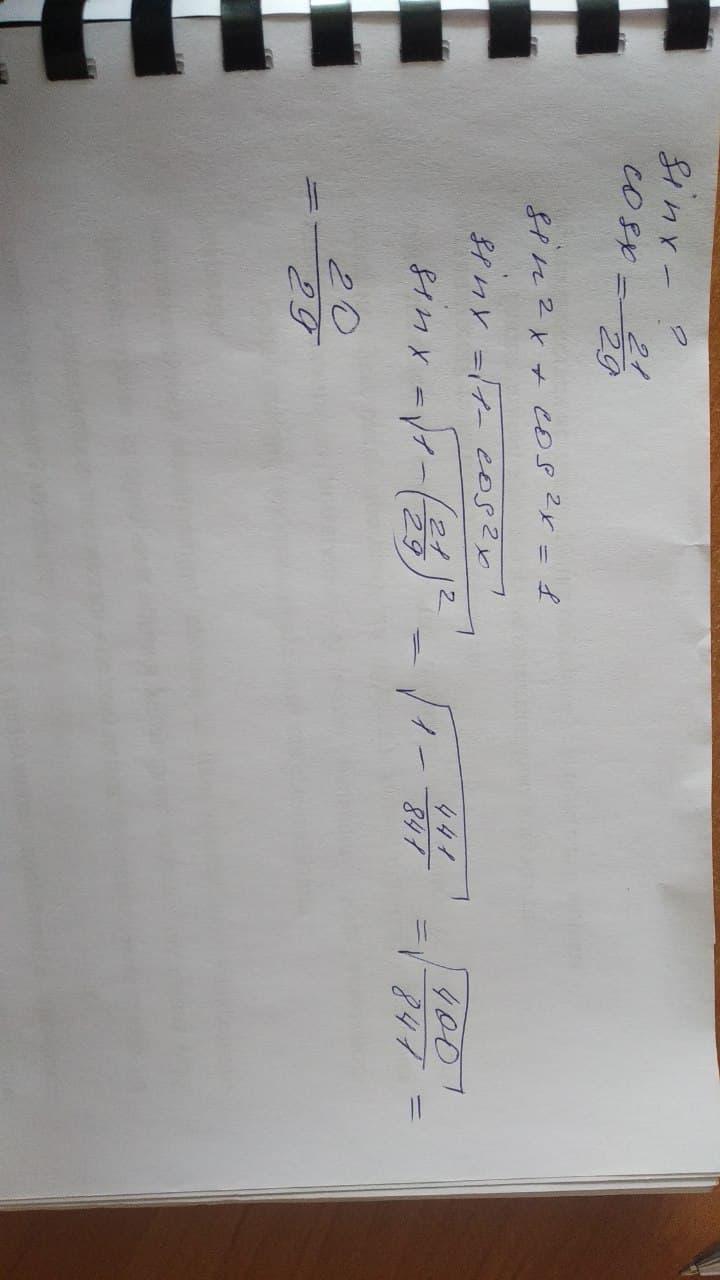 sin x - ?
cos x = 21/29
sin²x + cos²x = 1
sin x = √(1 - cos²x)
sin x = √(1 - (21/29)²) = √(1 - 441/841) = √(400/841) =
= 20/29